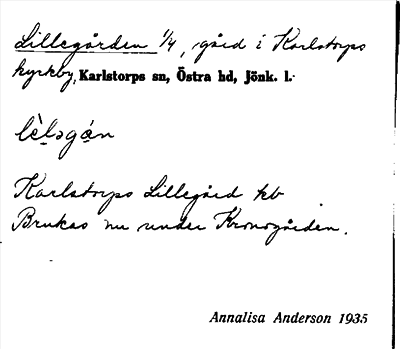 Lillegården 1/4, gård i Karlstorps
kyrkby, Karlstorps sn, Östra hd, Jönk. l.
lèləgán
Karlstorps Lillegård kb
Brukas nu under Kronogården.
Annalisa Anderson 1935